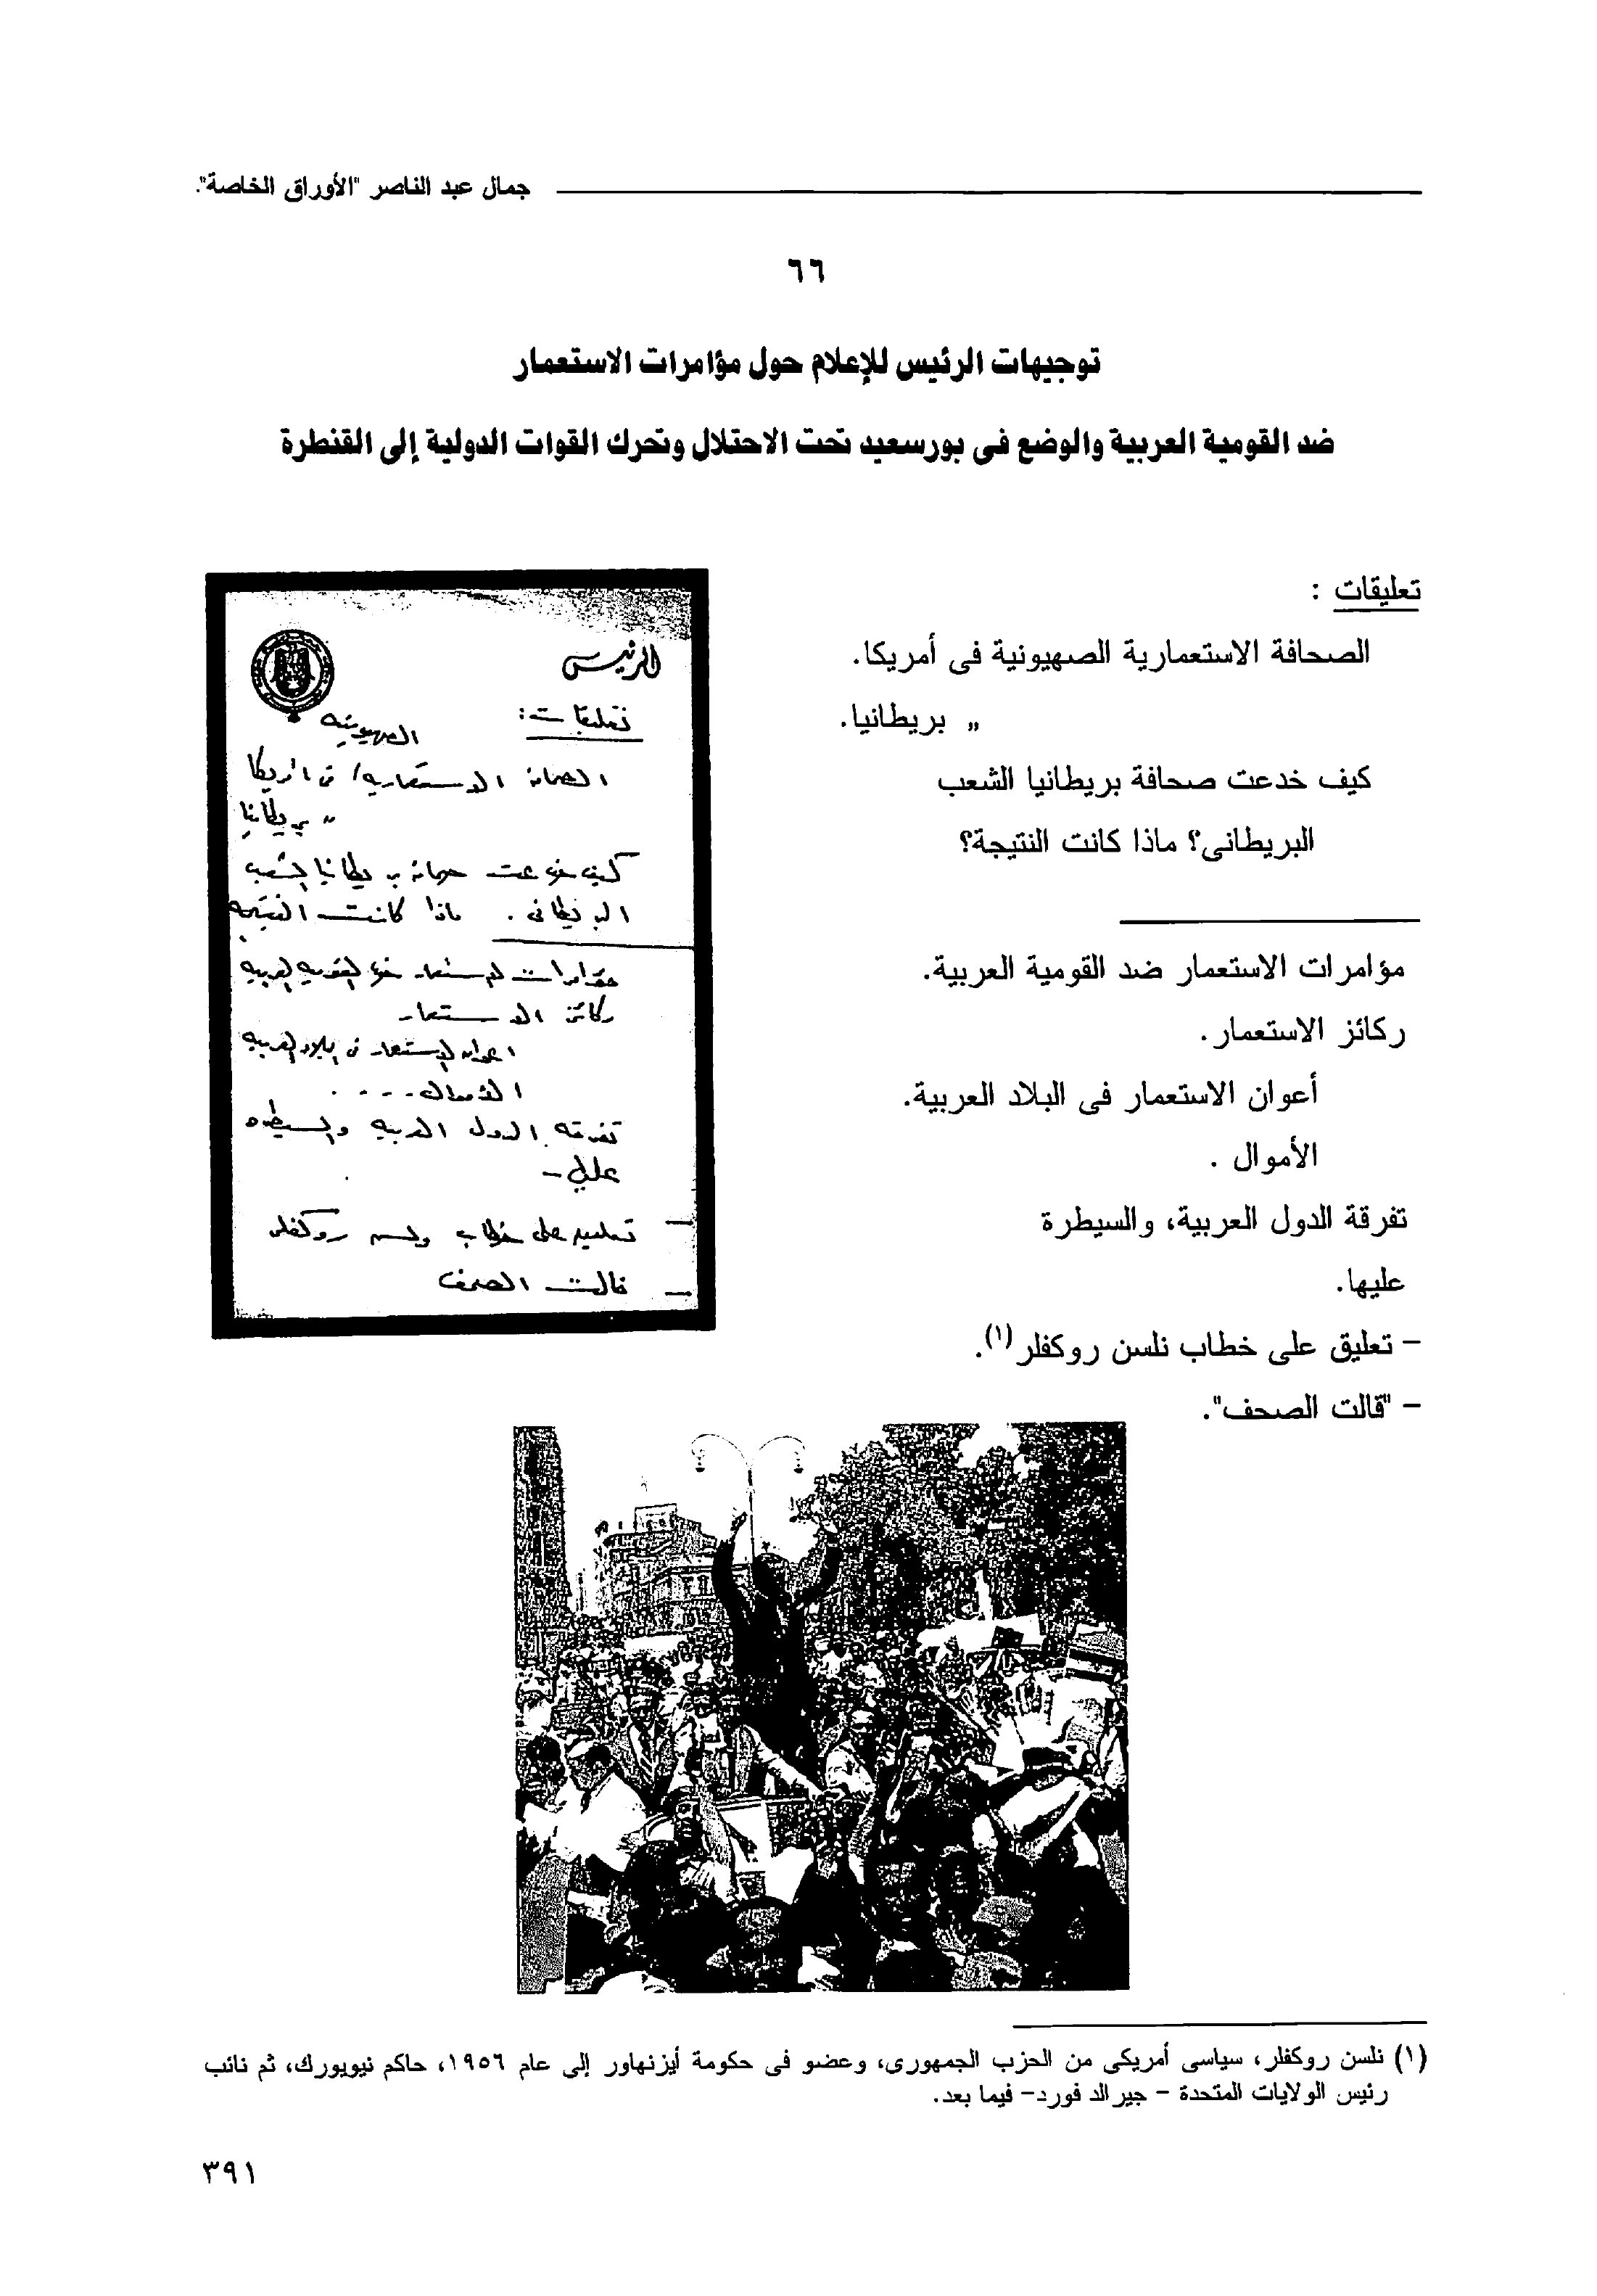 جمال عبد الناصر "الأوراق الخاصة".
٦٦
توجيهات الرئيس للإعلام حول مؤامرات الاستعمار
ضد القومية العربية والوضع فى بورسعيد تحت الاحتلال وتحرك القوات الدولية إلى القنطرة
تعليقات :
الصحافة الاستعمارية الصهيونية فى أمريكا.
„ بريطانيا.
كيف خدعت صحافة بريطانيا الشعب
البريطانى؟ ماذا كانت النتيجة؟
مؤامرات الاستعمار ضد القومية العربية.
ركائز الاستعمار.
أعوان الاستعمار فى البلاد العربية.
الأموال .
تفرقة الدول العربية، والسيطرة
عليها.
– تعليق على خطاب نلسن روكفلر(١).
– "قالت الصحف".
الرئيس
تعليقات :
الصهيونيه
الصحافة الاستعماريه / فى امريكا
„ بريطانيا
كيف خدعت صحافة بريطانيا الشعب
البريطانى . ماذا كانت النتيجه
مؤامرات الاستعمار ضد القوميه العربيه
ركائز الاستعمار
اعوان الاستعمار فى البلاد العربيه
الاموال . . . .
تفرقه الدول العربيه والسيطره
عليها –
– تعليق على خطاب نلسن روكفلر
– قالت الصحف
(١) نلسن روكفلر، سياسى أمريكى من الحزب الجمهورى، وعضو فى حكومة أيزنهاور إلى عام ١٩٥٦، حاكم نيويورك، ثم نائب
رئيس الولايات المتحدة – جيرالد فورد– فيما بعد.
٣٩١